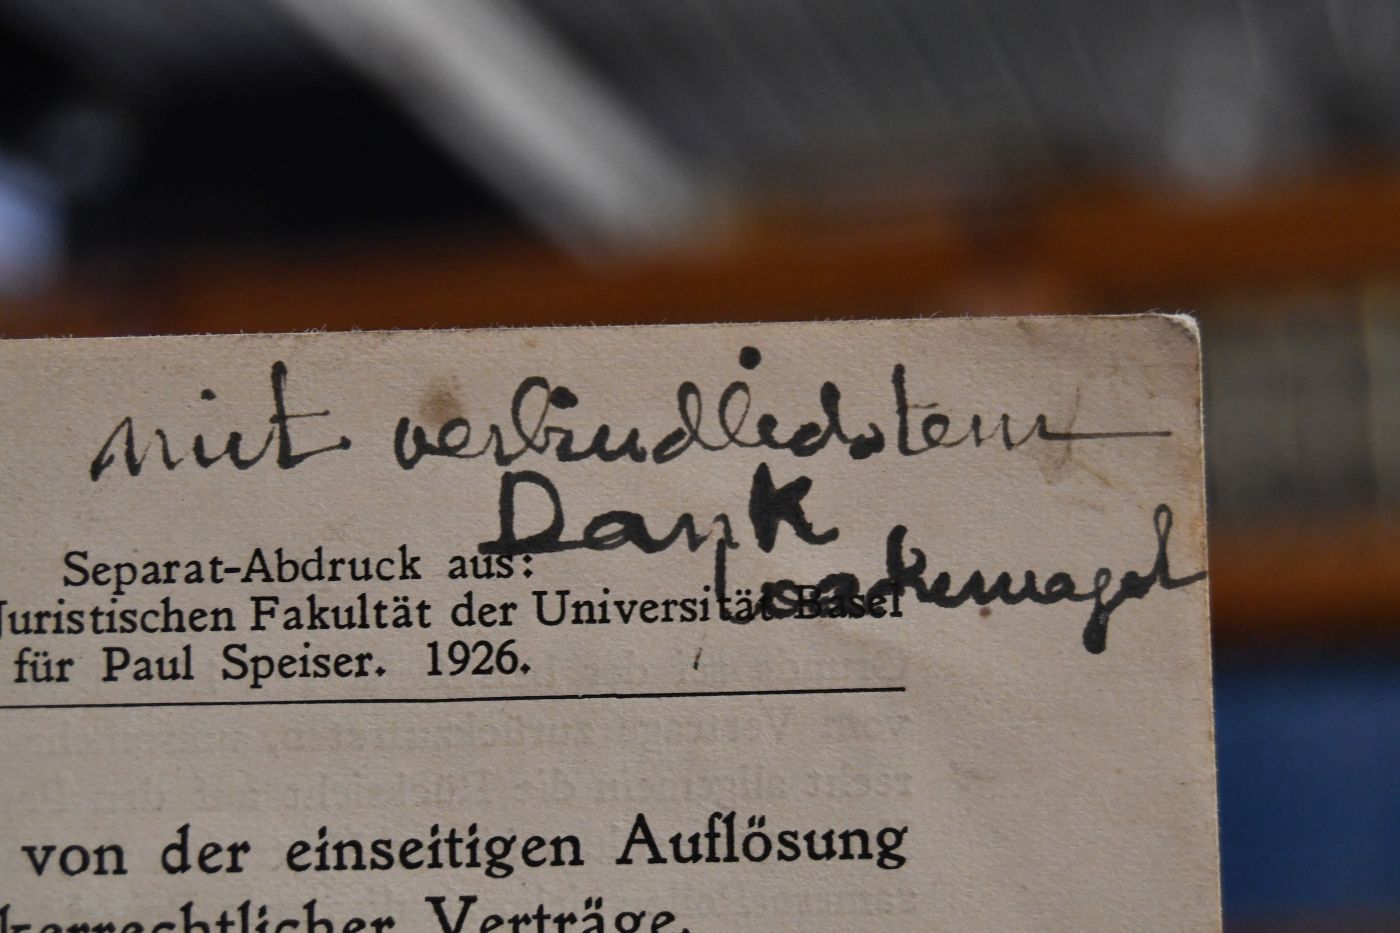 mit verbindlichstem
Dank
Wackernagel
Separat-Abdruck aus:
Juristischen Fakultät der Universität Basel
für Paul Speiser. 1926.
von der einseitigen Auflösung
kerrechtlicher Verträge.